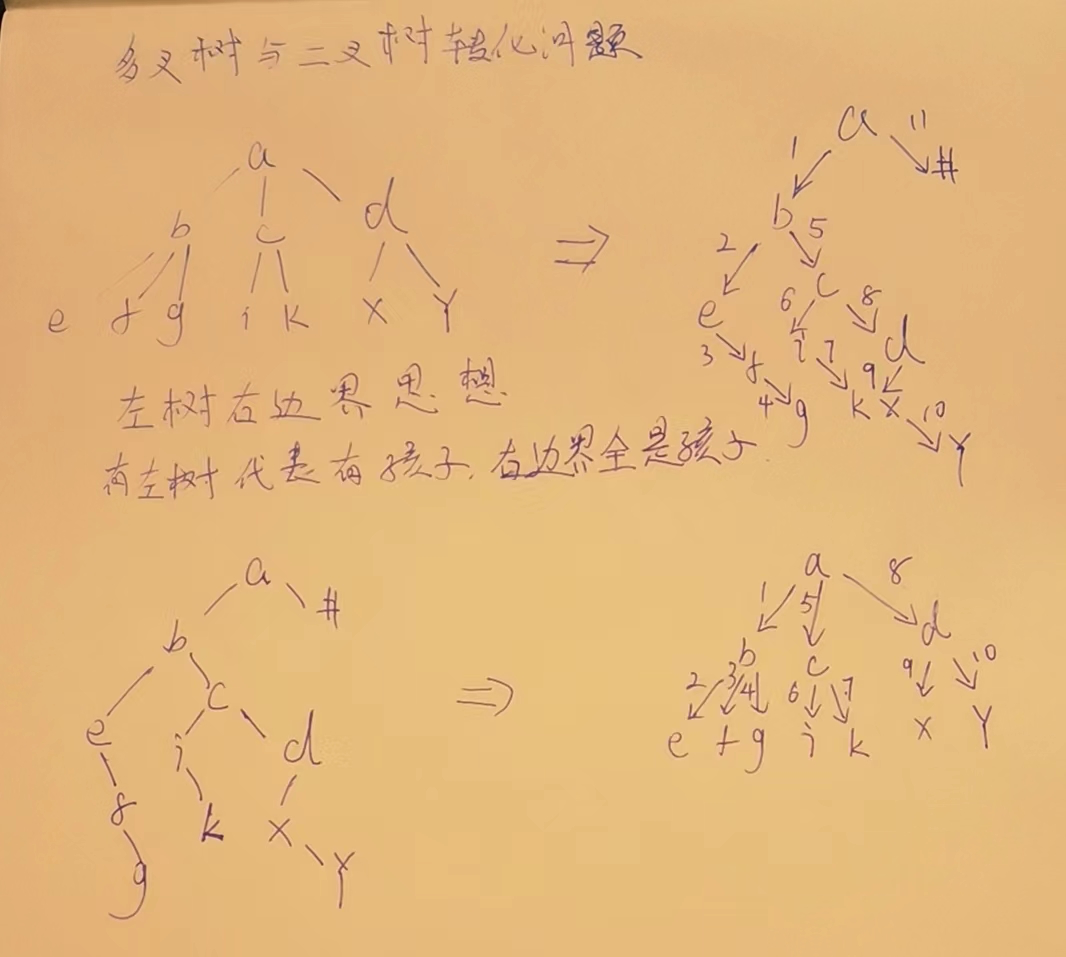 多叉树与二叉树转化问题
a
b c d
e f g i k x Y
⇒
a
1 11
b #
2 5
e c
3 6 8
f i d
4 7 9
g k x 10
Y
左树右边界思想
有左树代表有孩子,右边界全是孩子.
a
b #
e c
i d
f k x
g Y
⇒
a
1 5 8
b c d
2 3 4 6 7 9 10
e f g i k x Y